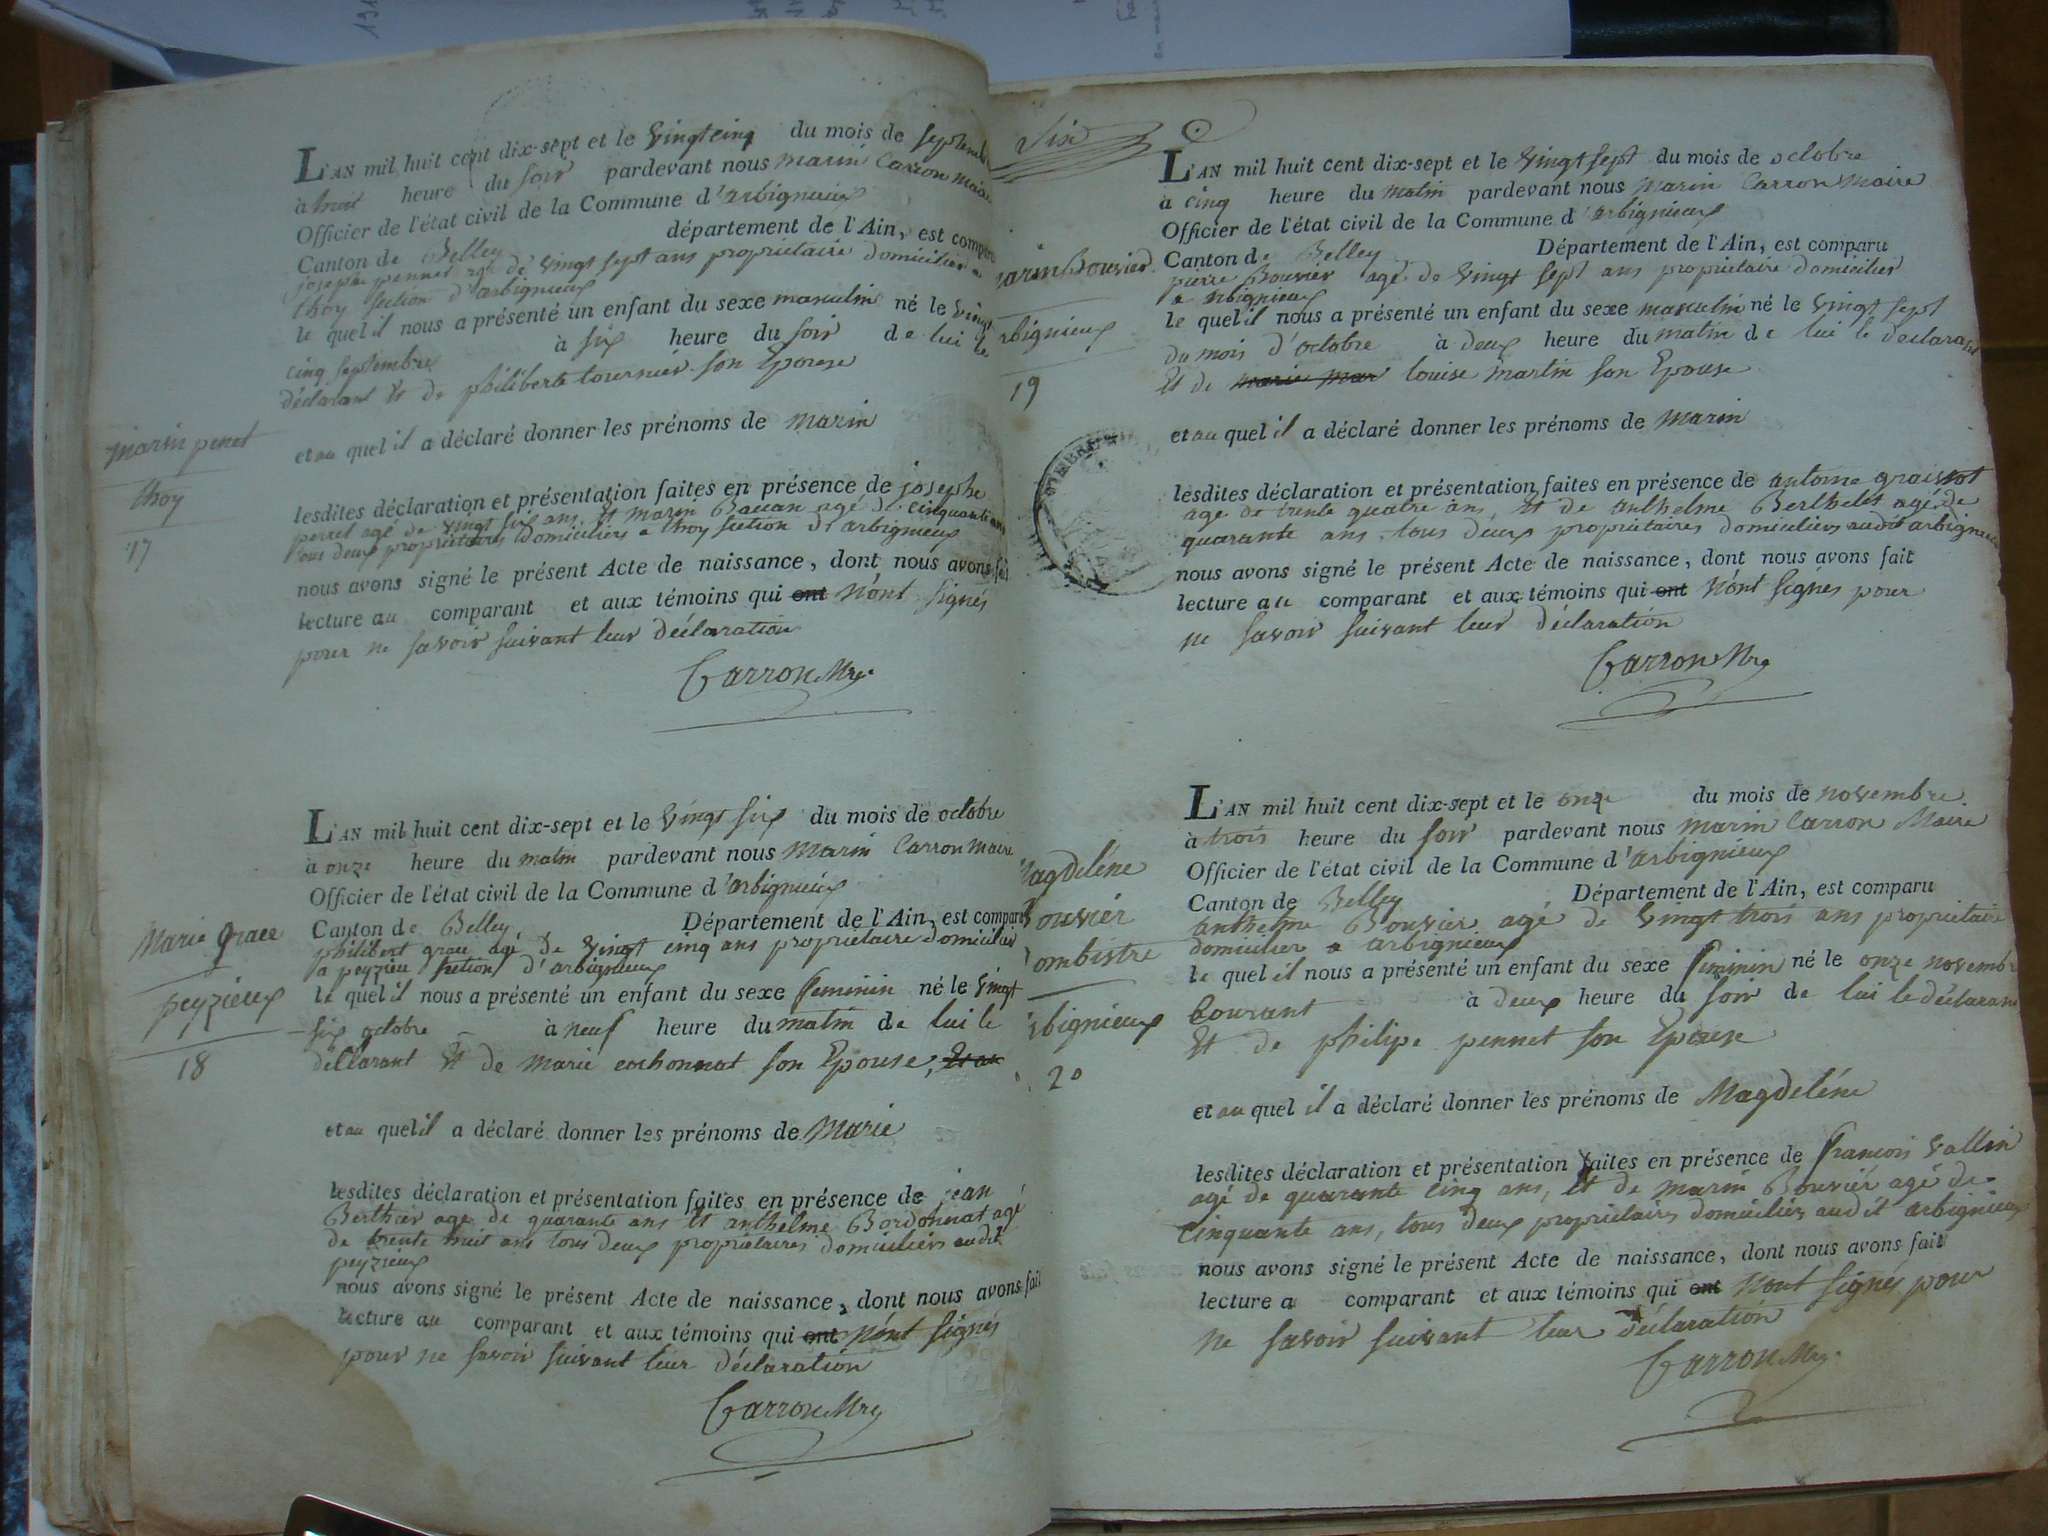 L'AN mil huit cent dix-sept et le vingt cinq du mois de septembre
à huit heure du soir pardevant nous marin Carron maire
Officier de l'état civil de la Commune d'arbignieux
Canton de Belley département de l'Ain, est comparu
joseph pennet agé de vingt sept ans proprietaire domicilier a
thoy section d'arbignieux
le quel il nous a présenté un enfant du sexe masculin né le vingt
cinq septembre à six heure du soir de lui le
déclarant Et de philiberte tournier son Epouse
marin penet
et au quel il a déclaré donner les prénoms de marin
thoy
17
lesdites déclaration et présentation faites en présence de josephe
perret agé de vingt six ans Et marin agé de cinquante ans
tous deux proprietaires domiciliers a thoy section d'arbignieux
nous avons signé le présent Acte de naissance, dont nous avons fait
lecture au comparant et aux témoins qui ont n'ont signés
pour ne savoir suivant leur déclaration
Carron Mre
L'AN mil huit cent dix-sept et le vingt six du mois de octobre
à onze heure du matin pardevant nous Marin Carron Maire
Officier de l'état civil de la Commune d'arbignieux
Canton de Belley Département de l'Ain, est comparu
Marie grace
philibert grace agé de vingt cinq ans proprietaire domicilier
a peyzieu section d'arbignieux
peyzieux
le quel il nous a présenté un enfant du sexe feminin né le vingt
six octobre à neuf heure du matin de lui le
18
déclarant Et de Marie cochonnat son Epouse, Et au
et au quel il a déclaré donner les prénoms de Marie
lesdites déclaration et présentation faites en présence de jean
Berthier agé de quarante ans Et anthelme Bordonnat agé
de trente huit ans tous deux proprietaires domiciliers audit
peyzieux
nous avons signé le présent Acte de naissance, dont nous avons fait
lecture au comparant et aux témoins qui ont n'ont signés
pour ne savoir suivant leur déclaration
Carron Mre
Six
L'AN mil huit cent dix-sept et le vingt sept du mois de octobre
à cinq heure du matin pardevant nous Marin Carron Maire
Officier de l'état civil de la Commune d'arbignieux
Canton de Belley Département de l'Ain, est comparu
marin Bouvier
pierre Bouvier agé de vingt sept ans proprietaire domicilier
a arbignieux
le quel il nous a présenté un enfant du sexe masculin né le vingt sept
arbignieux
du mois d'octobre à deux heure du matin de lui le déclarant
19
Et de marie mar louise martin son Epouse
et au quel il a déclaré donner les prénoms de Marin
lesdites déclaration et présentation faites en présence de antoine
agé de trente quatre ans, Et de anthelme Berthelet agé de
quarante ans, tous deux proprietaires domiciliers audit arbignieux
nous avons signé le présent Acte de naissance, dont nous avons fait
lecture au comparant et aux témoins qui ont n'ont signés pour
ne savoir suivant leur déclaration
Carron Mre
L'AN mil huit cent dix-sept et le onze du mois de novembre
à trois heure du soir pardevant nous Marin Carron Maire
Officier de l'état civil de la Commune d'arbignieux
Canton de Belley Département de l'Ain, est comparu
Magdeléne
Bouvier
anthelme Bouvier agé de vingt trois ans proprietaire
domicilier a arbignieux
ombistre
le quel il nous a présenté un enfant du sexe feminin né le onze novembre
arbignieux
Courant à deux heure du soir de lui le déclarant
Et de philipe pennet son Epouse
20
et au quel il a déclaré donner les prénoms de Magdeléne
lesdites déclaration et présentation faites en présence de francois vallin
agé de quarante cinq ans, Et de marin Bouvier agé de
cinquante ans, tous deux proprietaires domiciliers audit arbignieux
nous avons signé le présent Acte de naissance, dont nous avons fait
lecture a comparant et aux témoins qui ont n'ont signés pour
ne savoir suivant leur déclaration
Carron Mre